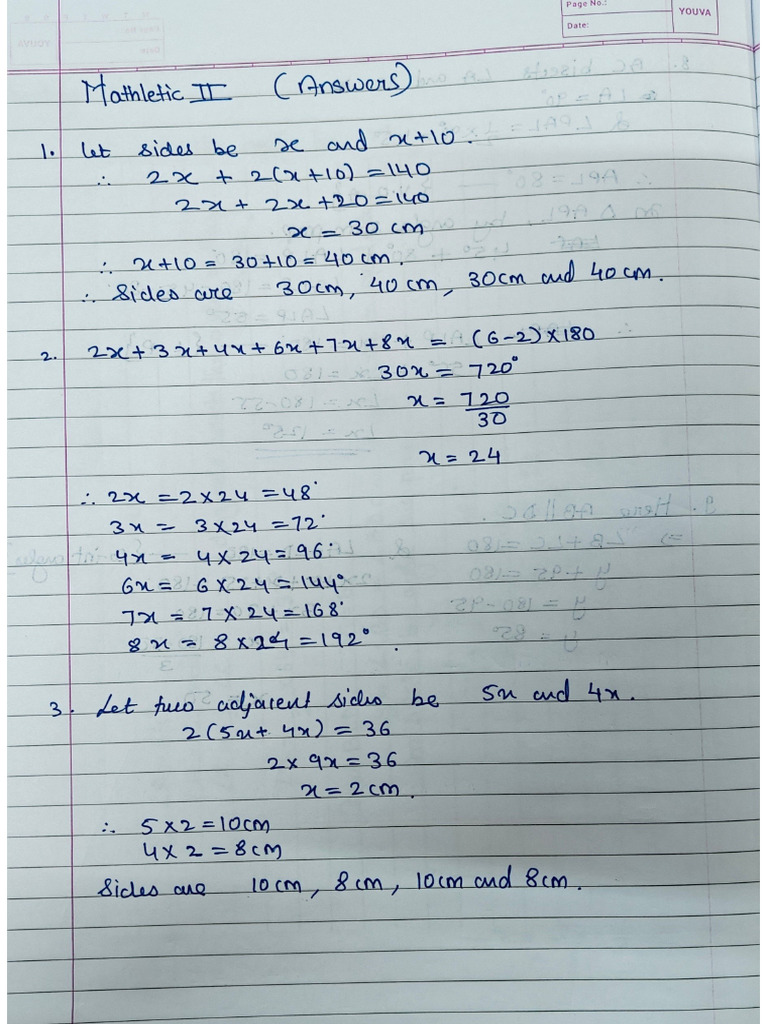 Page No.:
Date:
YOUVA
Mathletic II (Answers)
1. Let sides be x and x+10.
∴ 2x + 2(x+10) = 140
2x + 2x + 20 = 140
x = 30 cm
∴ x+10 = 30+10 = 40 cm.
∴ Sides are 30cm, 40 cm, 30cm and 40 cm.
2. 2x+3x+4x+6x+7x+8x = (6-2)×180
30x = 720°
x = 720
30
x = 24
∴ 2x = 2×24 = 48°
3x = 3×24 = 72°
4x = 4×24 = 96°
6x = 6×24 = 144°
7x = 7×24 = 168°
8x = 8×24 = 192°.
3. Let two adjacent sides be 5x and 4x.
2(5x+4x) = 36
2×9x = 36
x = 2cm.
∴ 5×2 = 10cm
4×2 = 8cm
Sides are 10cm, 8cm, 10cm and 8cm.